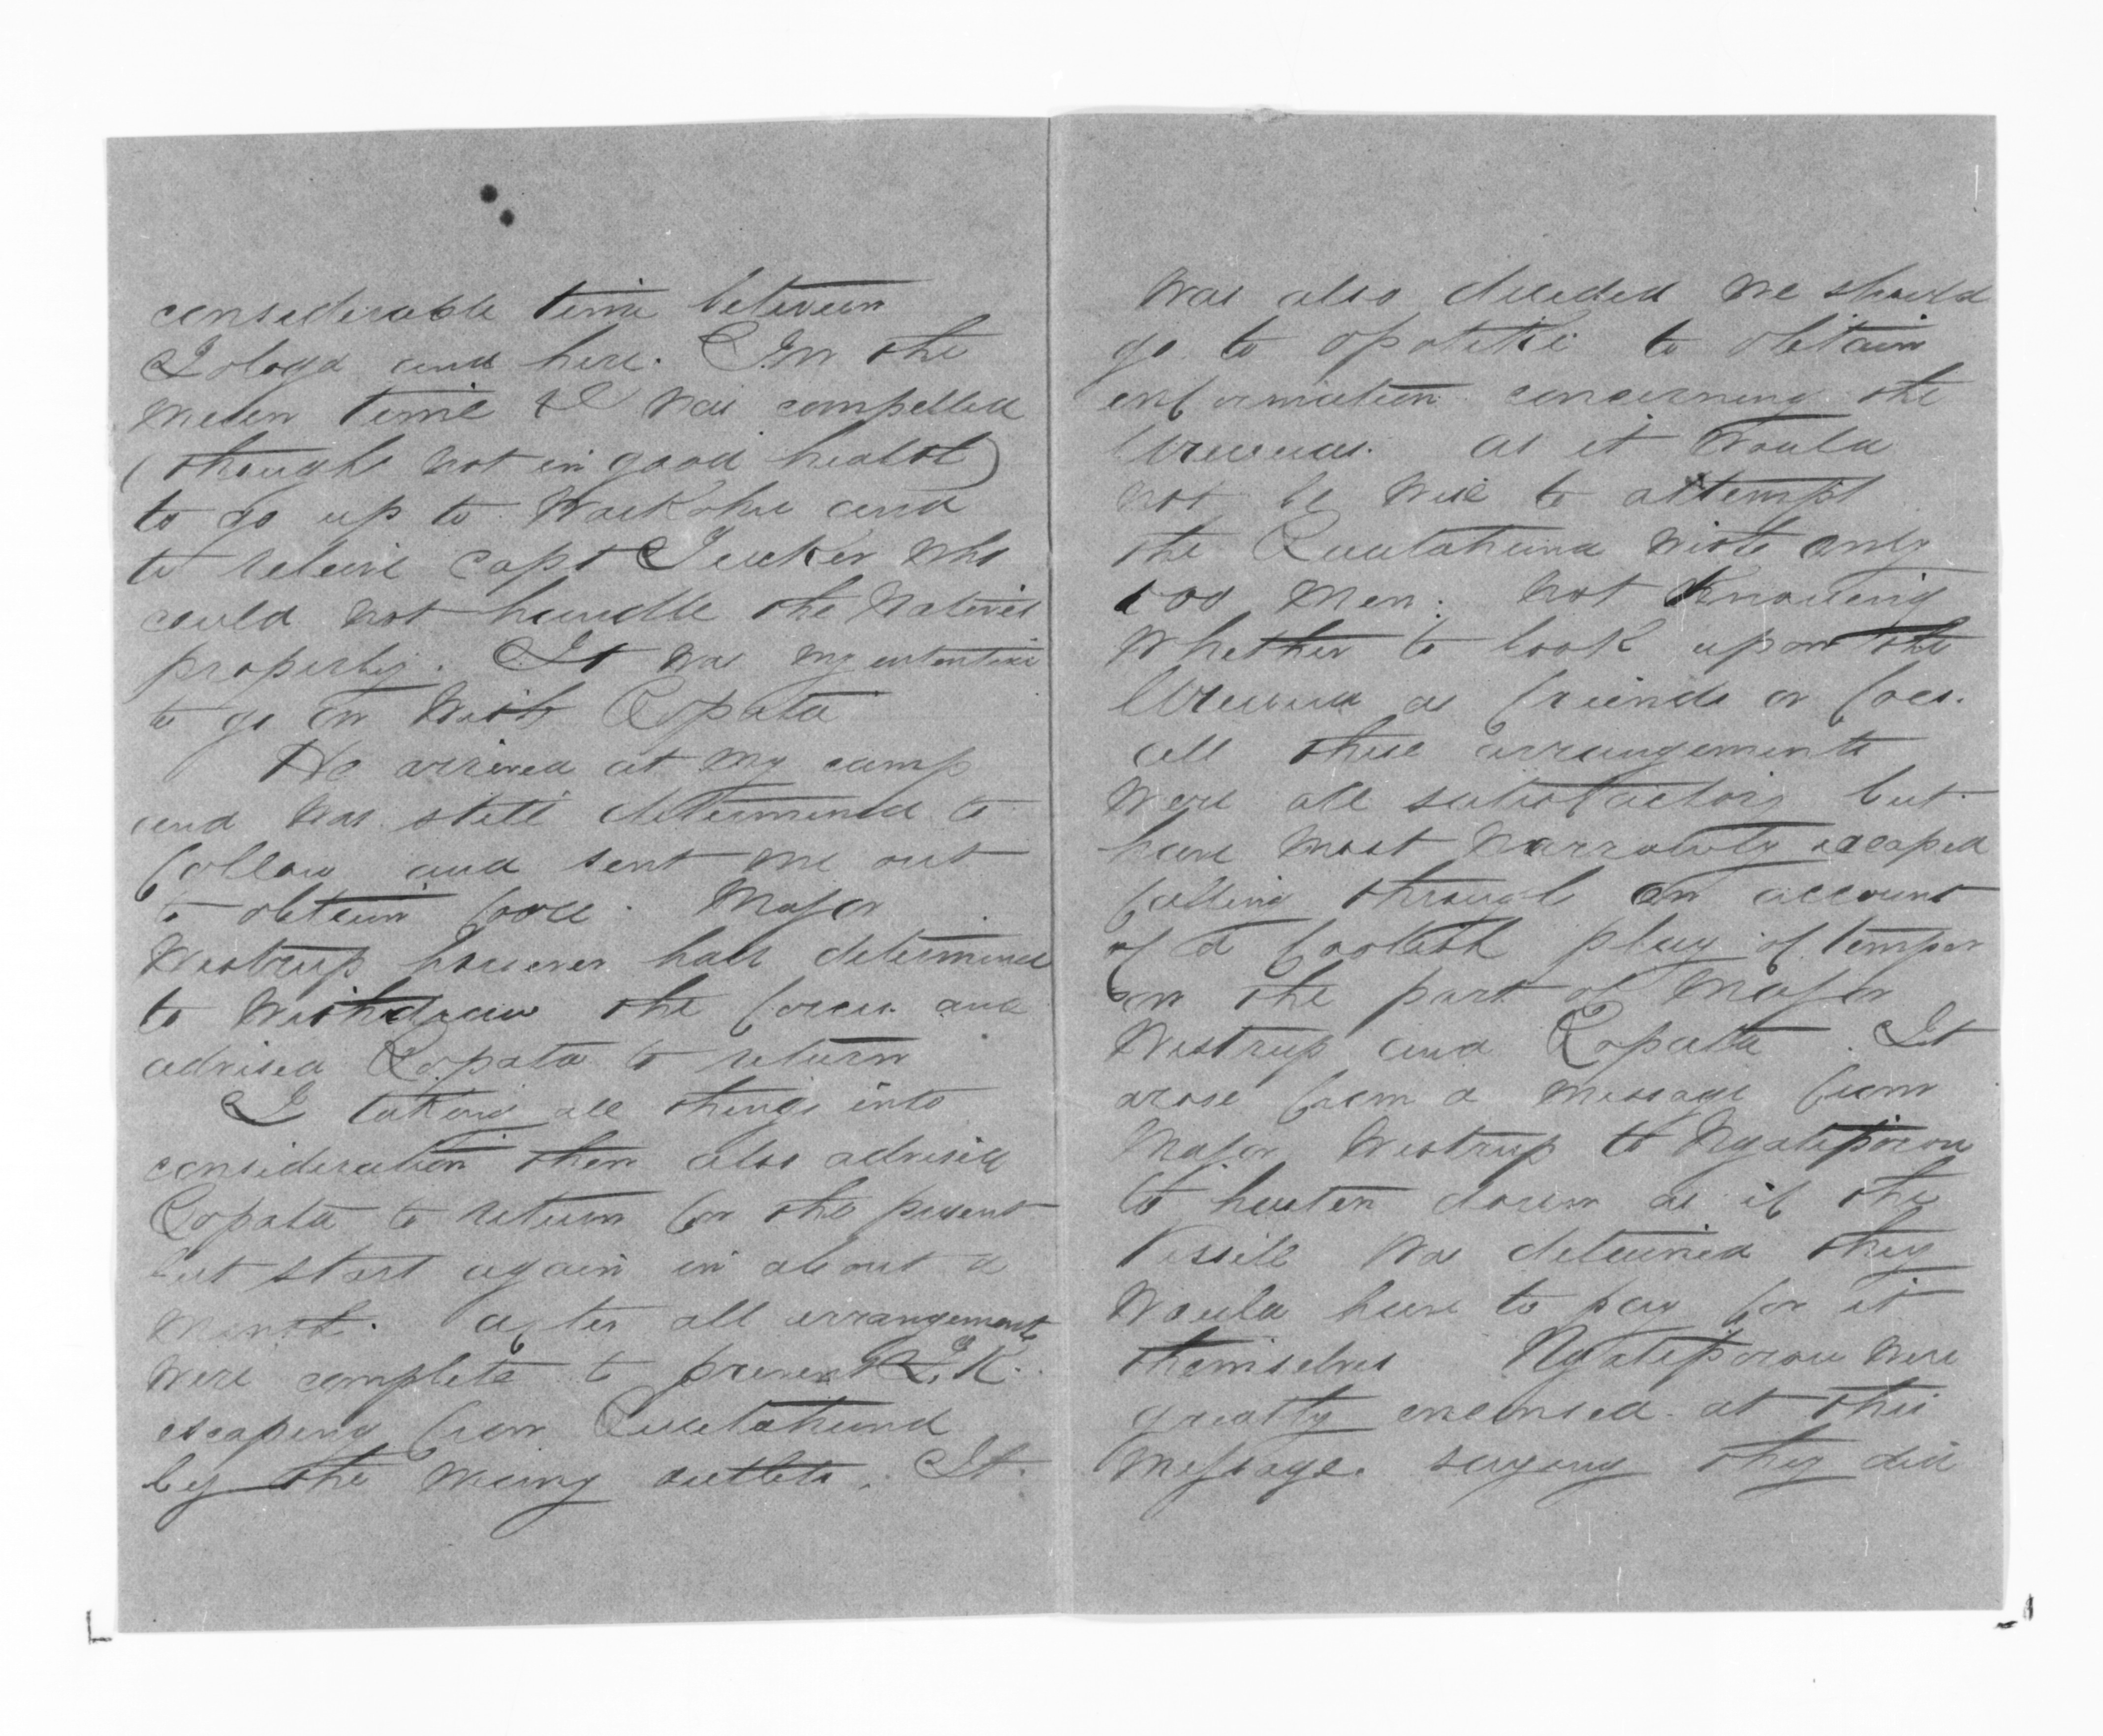 considerable time between
Tologa and here. In the
mean time I was compelled
(though not in good health)
to go up to and
to releive Capt Tucker who
could not handle the Natives
properly. It was my intention
to go on with Ropata
He arrived at my camp
and was still determined to
follow and sent me out
to obtain food. Major
Westrup however had determined
to withdraw the forces and
advised Ropata to return
I taking all things into
consideration then also advised
Ropata to return for the present
but start again in about a
month. After all arrangements
were complete to prevent T.K.
escaping from Ruatahuna
by the many outlets. It
was also decided we should
go to opotiki to obtain
information concerning the
Urewera. as it would
not be wise to attempt
the Ruatahuna with only
men. not knowing
whether to look upon the
Urewera as friends or foes.
all these arrangements
were all satisfactory but
have most narrowly escaped
falling through on account
of a foolish play of temper
on the part of Major
Westrup and Ropata. It
arose from a message from
Major Westrup to Ngatiporou
to hasten down as if the
Vessell was detained they
would have to pay for it
themselves Ngatiporou were
greatly incensed at this
message. saying they did